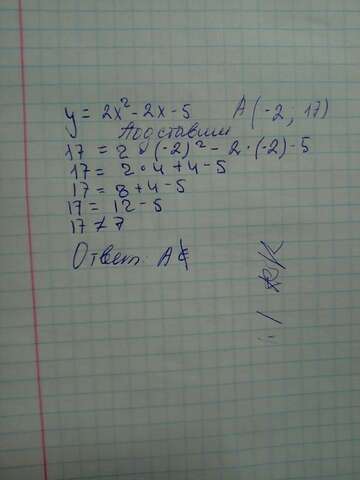 y = 2x² - 2x - 5 A (-2; 17)
Подставим
17 = 2 · (-2)² - 2 · (-2) - 5
17 = 2 · 4 + 4 - 5
17 = 8 + 4 - 5
17 = 12 - 5
17 ≠ 7
Ответ: A ∉